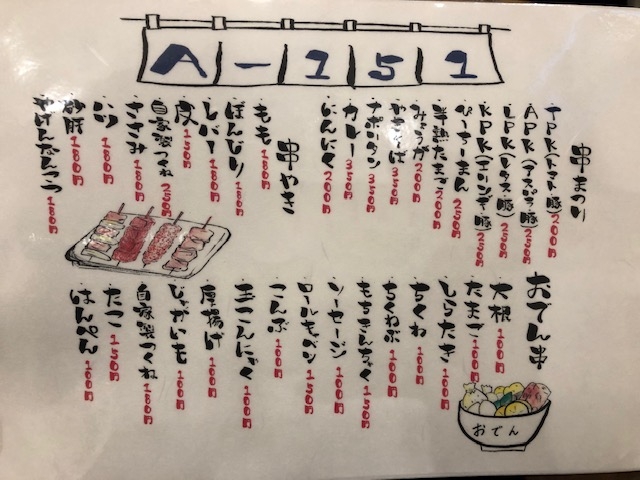 A-151
串まつり
TPK(トマト豚) 200円
APK(アスパラ豚) 250円
LPK(レタス豚) 250円
KPK(エリンギ豚) 250円
ぴーちーまん 250円
半熟たまご 200円
みょうが 200円
やきそば 350円
ナポリタン 350円
カレー 350円
にんにく 200円
串やき
もも 180円
ぼんじり 180円
レバー 180円
皮 150円
自家製つくね 250円
ささみ 180円
ハツ 180円
砂肝 180円
やげんなんこつ 180円
おでん串
大根 100円
たまご 100円
しらたき 100円
ちくわ 100円
ちくわぶ 100円
もちきんちゃく 150円
ソーセージ 100円
ロールキャベツ 150円
こんぶ 100円
玉こんにゃく 100円
厚揚げ 100円
じゃがいも 100円
自家製つくね 180円
たこ 150円
はんぺん 100円
おでん